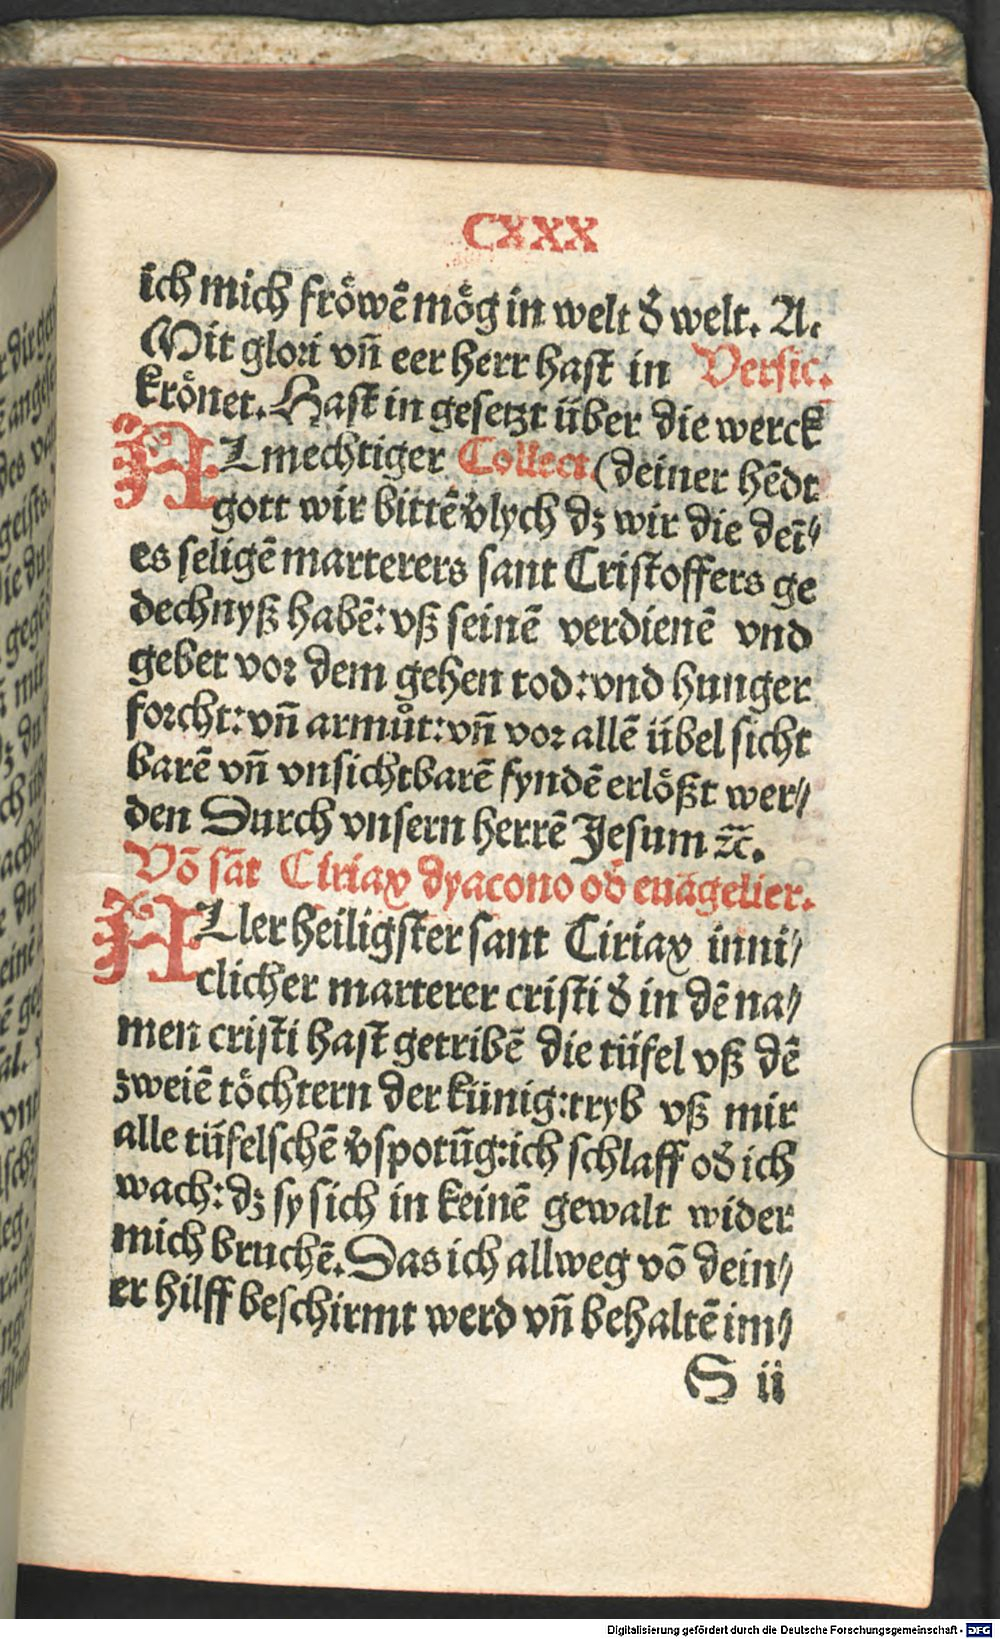 CXXX
ich mich froͤwẽ moͤg in welt d̕ welt. A.
Mit glori vñ eer herr hast in Versic.
kroͤnet. Hast in gesetzt uͤber die werck
ALmechtiger Collect (deiner hẽdt
gott wir bittẽ v̕lych dz wir die dei̅⸗
es seligẽ marterers sant Cristoffers ge
dechnyß habẽ: vß seinẽ verdienẽ vnd
gebet vor dem gehen tod: vnd hunger
forcht: vñ armůt: vñ vor allẽ uͤbel sicht
barẽ vñ vnsichtbarẽ fyndẽ erloͤßt wer⸗
den Durch vnsern herrẽ Jesum ꝛc̃.
Võ sãt Ciriax dyacono od̕ euãgelier.
ALler heiligster sant Ciriax inni⸗
clicher marterer cristi d̕ in dẽ na⸗
men cristi hast getribẽ die tüfel vß dẽ
zweiẽ toͤchtern der künig: tryb vß mir
alle tüfelschẽ v̕spotũg: ich schlaff od̕ ich
wach: dz sy sich in keinẽ gewalt wider
mich bruchẽ. Das ich allweg võ dein⸗
er hilff beschirmt werd vñ behaltẽ im⸗
S ii
Digitalisierung gefördert durch die Deutsche Forschungsgemeinschaft - DFG